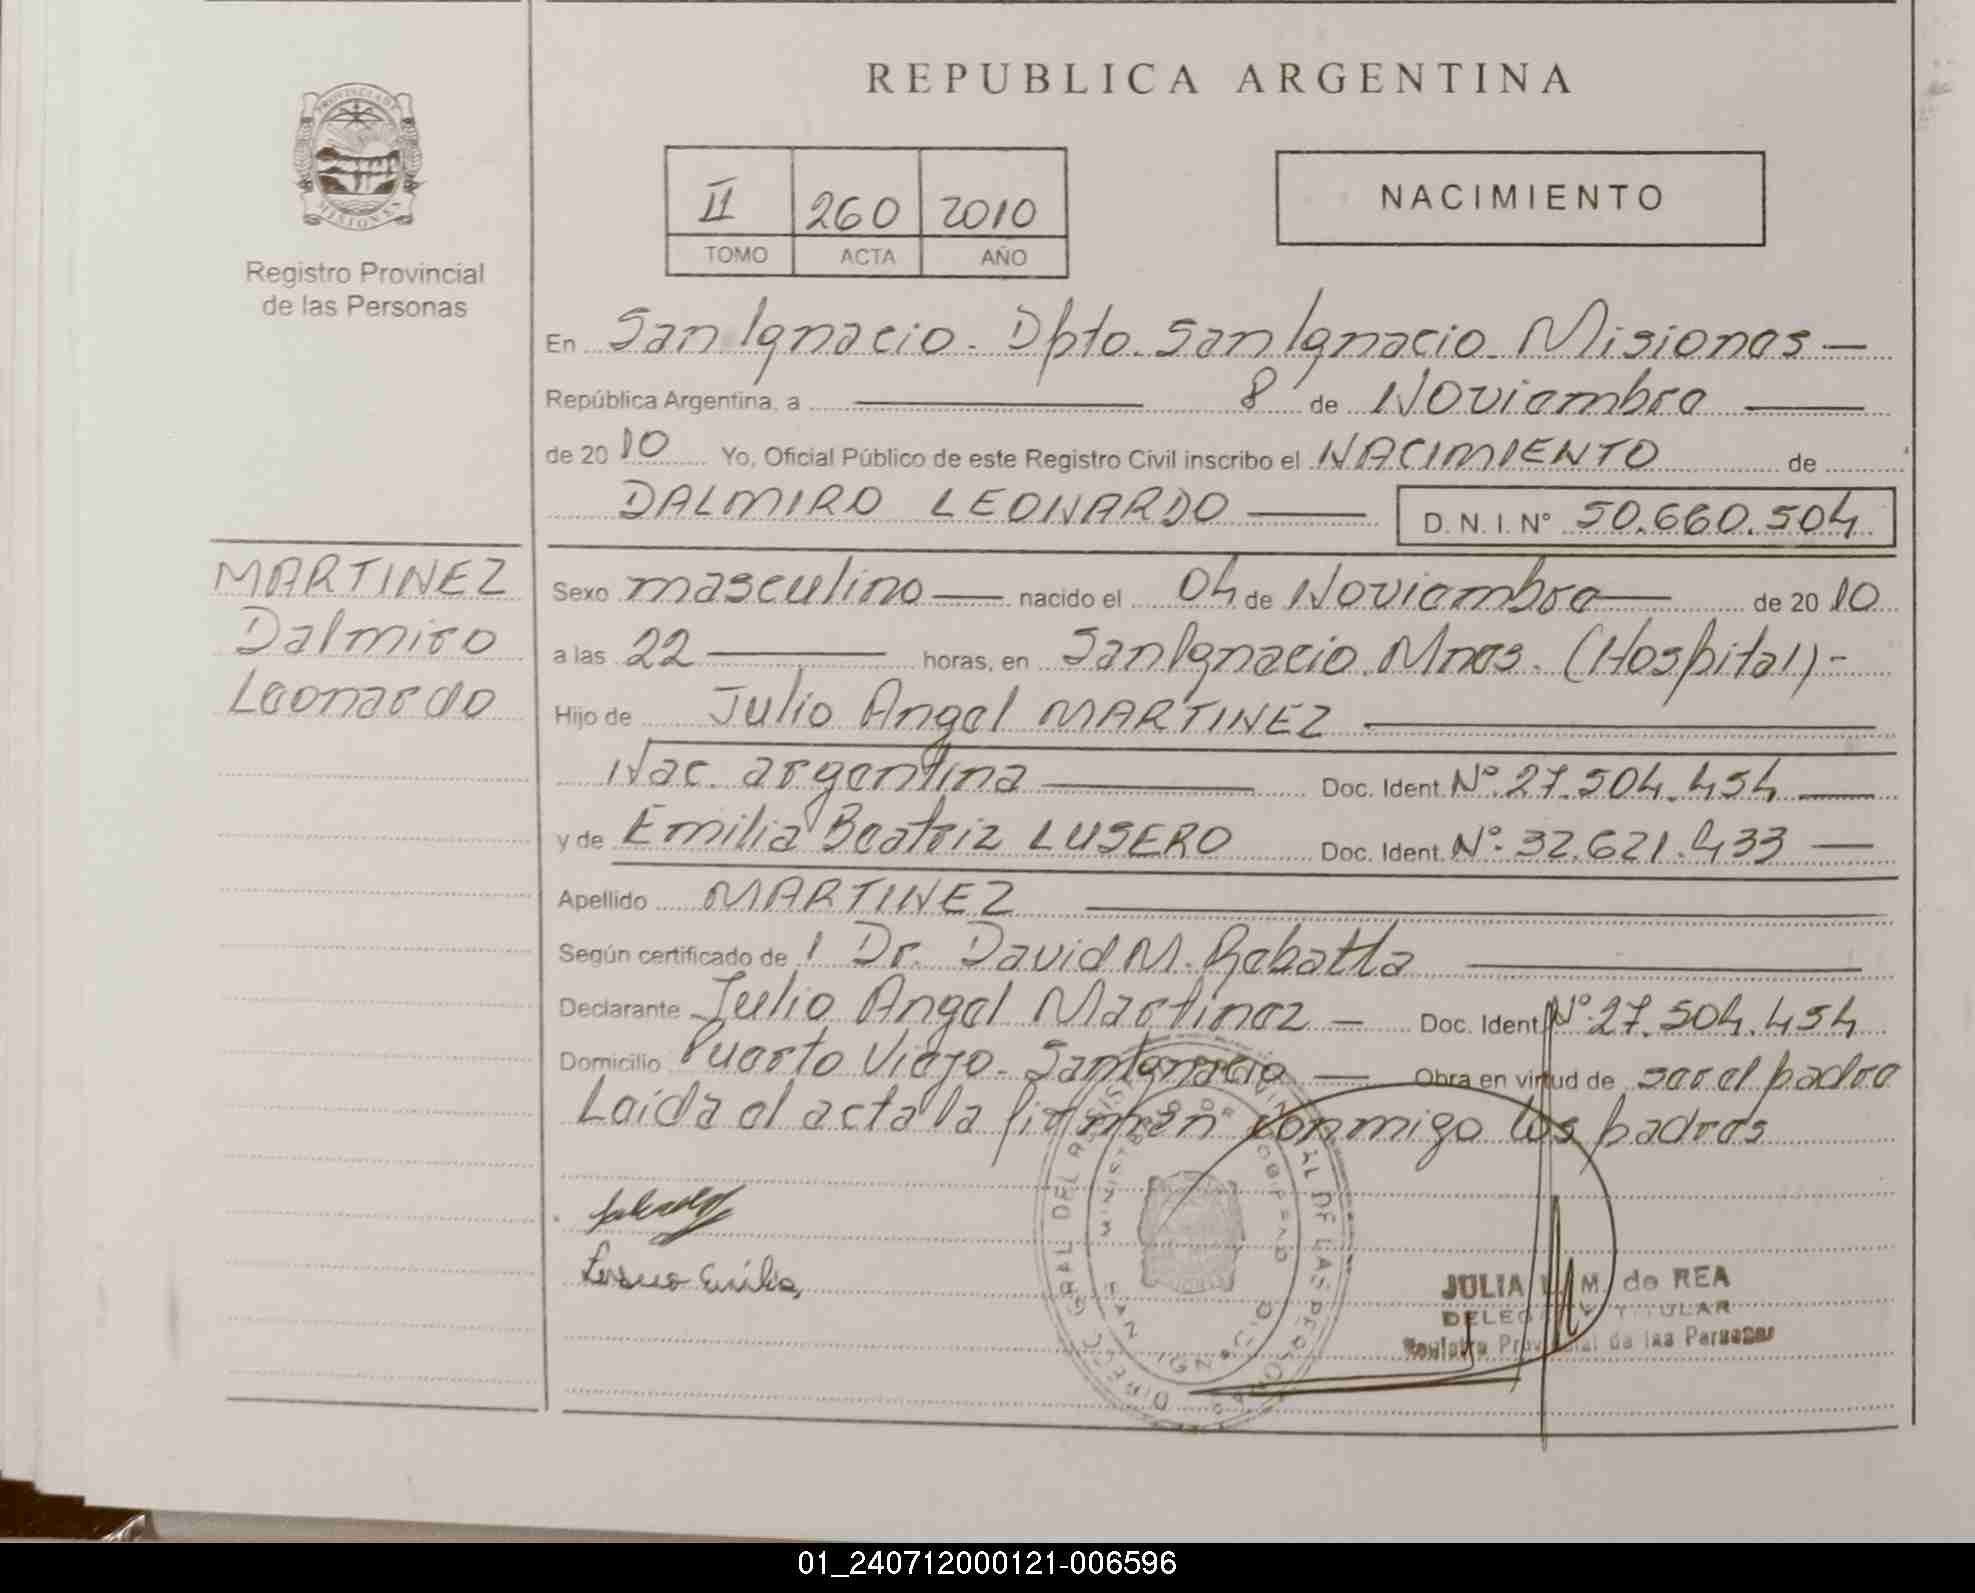 REPUBLICA ARGENTINA
PROVINCIA DE MISIONES
Registro Provincial
de las Personas
II 260 2010
TOMO ACTA AÑO
NACIMIENTO
En San Ignacio. Dpto. San Ignacio. Misiones —
República Argentina, a 8 de Noviembre
de 2010 Yo, Oficial Público de este Registro Civil inscribo el NACIMIENTO de
DALMIRO LEONARDO — D. N. I. Nº 50.660.504
MARTINEZ
Dalmiro
Leonardo
Sexo masculino — nacido el 04 de Noviembre — de 2010
a las 22 — horas, en San Ignacio. Mnes. (Hospital) -
Hijo de Julio Angel MARTINEZ
Nac. argentina — Doc. Ident. Nº. 27.504.454 —
y de Emilia Beatriz LUSERO Doc. Ident. Nº. 32.621.433 —
Apellido MARTINEZ
Según certificado de l Dr. David M.
Declarante Julio Angel Martinez — Doc. Ident. Nº. 27.504.454
Domicilio Puerto Viejo. San Ignacio — Obra en virtud de ser el padre
Leída el acta la firman conmigo los padres
Lusero Emilia
JULIA M. de REA
TITULAR
Registro Provincial de las Personas
01_240712000121-006596